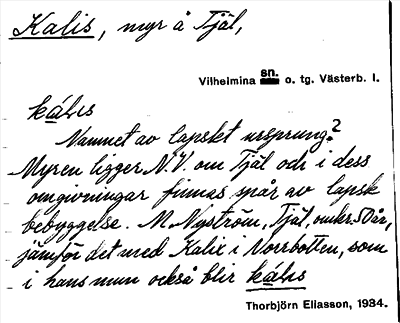 Kalis, myr å Tjäl,
Vilhelmina sn. o. tg. Västerb. l.
kális
Namnet av lapskt ursprung?
Myren ligger N.V. om Tjäl och i dess
omgivningar finnas spår av lapsk
bebyggelse. M. Nyström, Tjäl, omkr. 50 år,
jämför det med Kalix i Norrbotten, som
i hans mun också blir kális
Thorbjörn Eliasson, 1934.